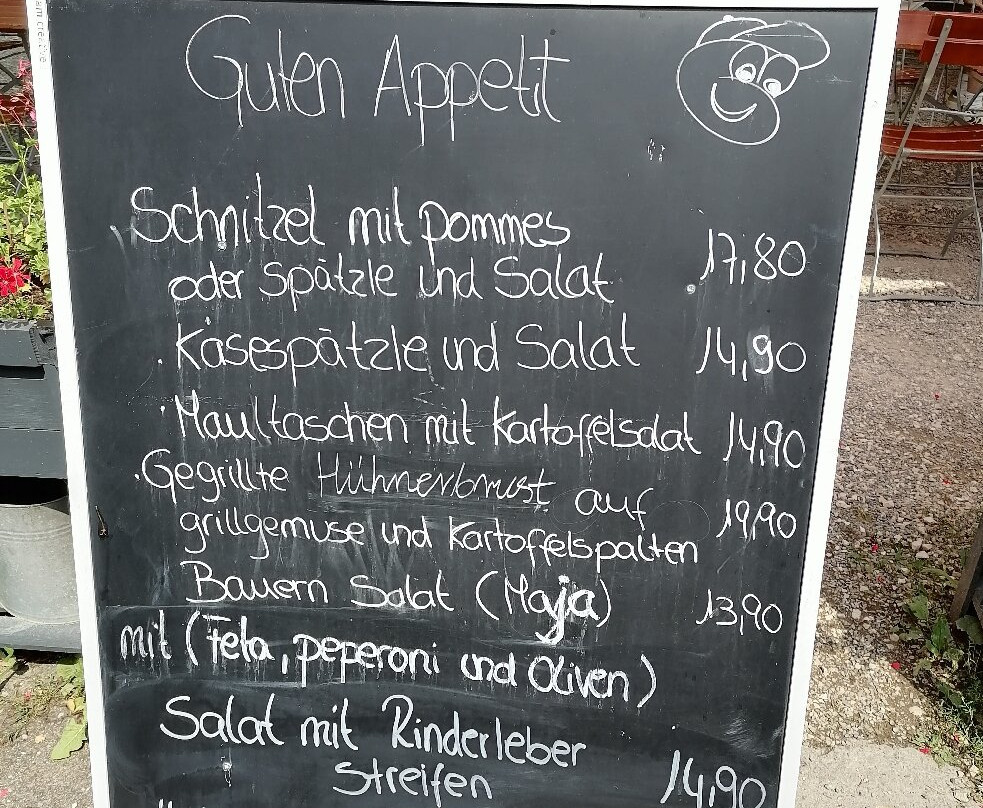 Guten Appetit
Schnitzel mit pommes
oder Spätzle und Salat 17,80
. Käsespätzle und Salat 14,90
. Maultaschen mit Kartoffelsalat 14,90
. Gegrillte Hühnerbrust auf
grillgemuse und Kartoffelspalten 19,90
Bauern Salat (Maja) 13,90
mit (Feta, peperoni und Oliven)
Salat mit Rinderleber
Streifen 14,90